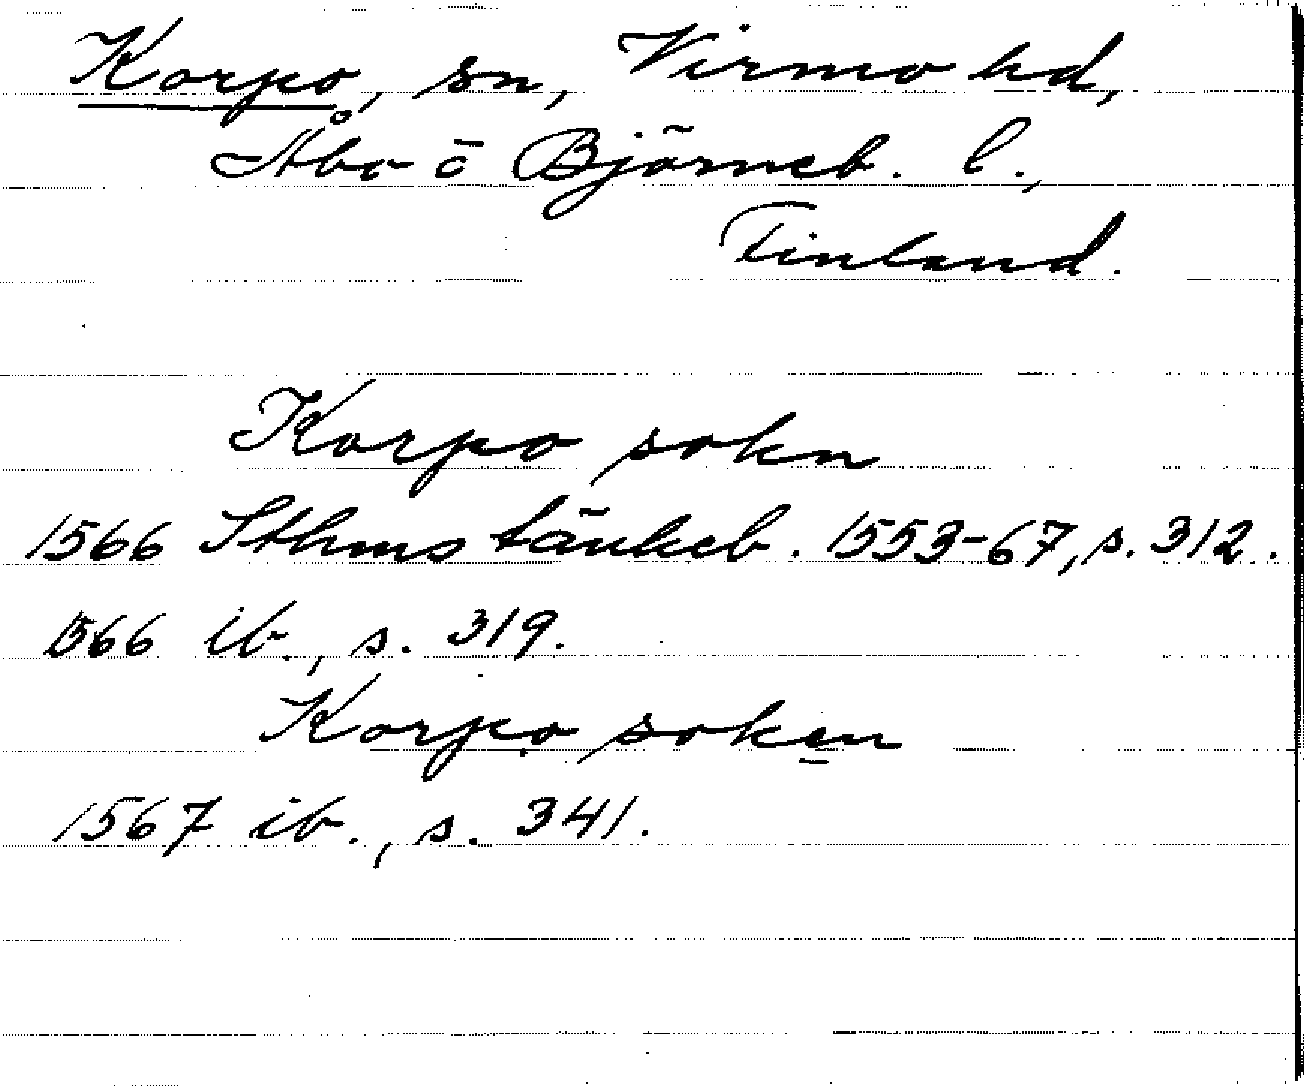 Korpo, sn, Virmo hd,
Åbo- o Björneb. l.,
Finland.
Korpo sokn
1566 Sthms tänkeb. 1553-67, s. 312.
1566 ib., s. 319.
Korpo soken
1567 ib., s. 341.